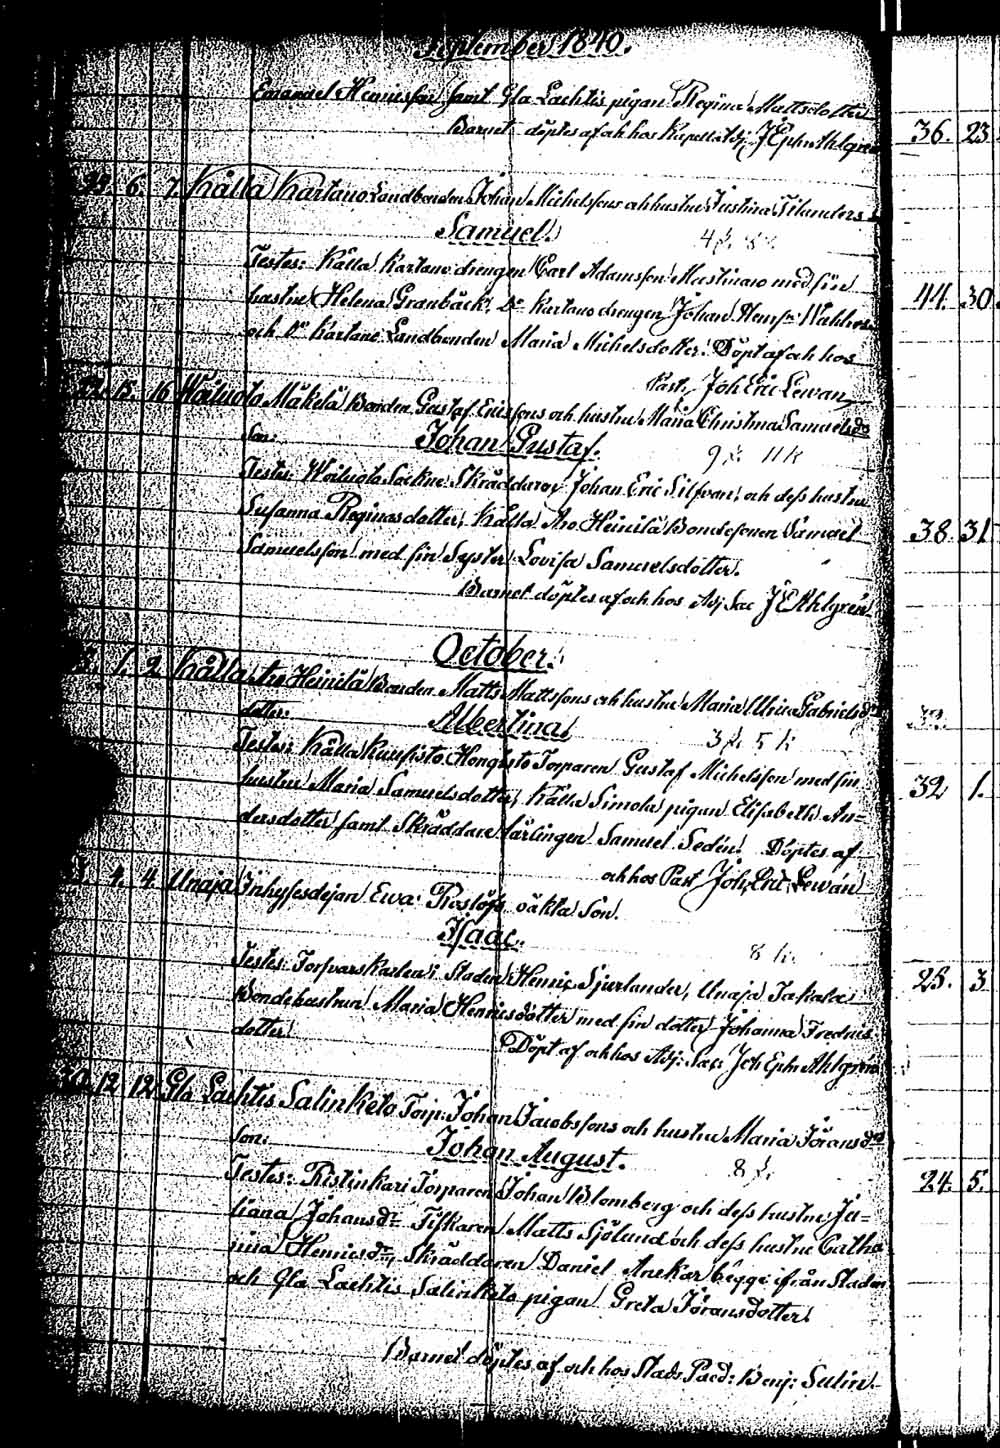 September 1840.
Emanuel Henricsson samt Gla Lachtis pigan Regina Mattsdotter
Barnet döptes af och hos Kapells Adj: J Ephr Ahlgren 36. 23.
6. 7. Kålla Kartano Landbonden Johan Michelssons och hustru Justina Tilanders
Samuel. 4
Testes: Kålla Kartano drengen Carl Adamsson Mastinano med sin
hustru Helena Granbäck, Do Kartano drengen Johan Henrsn 44. 30
och Do Kartano Landbonden Maria Michelsdotter. Döpt af och hos
Past. Joh Eric Lewan
15. 16 Woiluoto Mäkelä Bonden Gustaf Ericssons och hustru Maria Christina Samuelsdr
Son: Johan Gustaf. 9 11
Testes: Woiluoto Sockne Skräddaren Johan Eric Silfvan och dess hustru
Susanna Reginasdotter, Kålla Ano Heinilä Bondesonen Samuel 38. 31
Samuelsson med sin Syster Lovisa Samuelsdotter.
Barnet döptes af och hos Adj Sac J E Ahlgren
October.
1. 2. Kålla Ano Heinilä Bonden Matts Mattssons och hustru Maria Ulrica Gabrielsdr
dotter: Albertina 3 5
Testes: Kålla Kuusisto Hongisto Torparen Gustaf Michelsson med sin
hustru Maria Samuelsdotter, Kålla Simola pigan Elisabeth An= 32 1.
dersdotter samt Skräddare lärlingen Samuel Sedin. Döptes af
och hos Past Joh, Eric Lewan
4. 4. Unaja Inhysesdejan Ewa Roslöfs oäkta Son.
Isaac. 8
Testes: Torfvarskarlen i Staden Henric Sjurlander, Unaja Jakala 25. 3
Bondehustrun Maria Henricsdotter med sin dotter Johanna Fredrics
dotter. Döpt af och hos Adj: Sac: Joh Ephr Ahlgren
12. 12. Gla Lachtis Salinketo Torp: Johan Jacobssons och hustru Maria Jöransdr
Son: Johan August. 8
Testes: Ristinkari Torparen Johan Blomberg och dess hustru Ju= 24. 5.
liana Johansdr Fiskaren Matts Sjölund och dess hustru Catha
rina Henricsdr, Skräddaren Daniel Anckar bägge ifrån Staden
och Gla Lachtis Salinketo pigan Greta Jöransdotter.
Barnet döptes af och hos Stads Paed: Benj: Salin